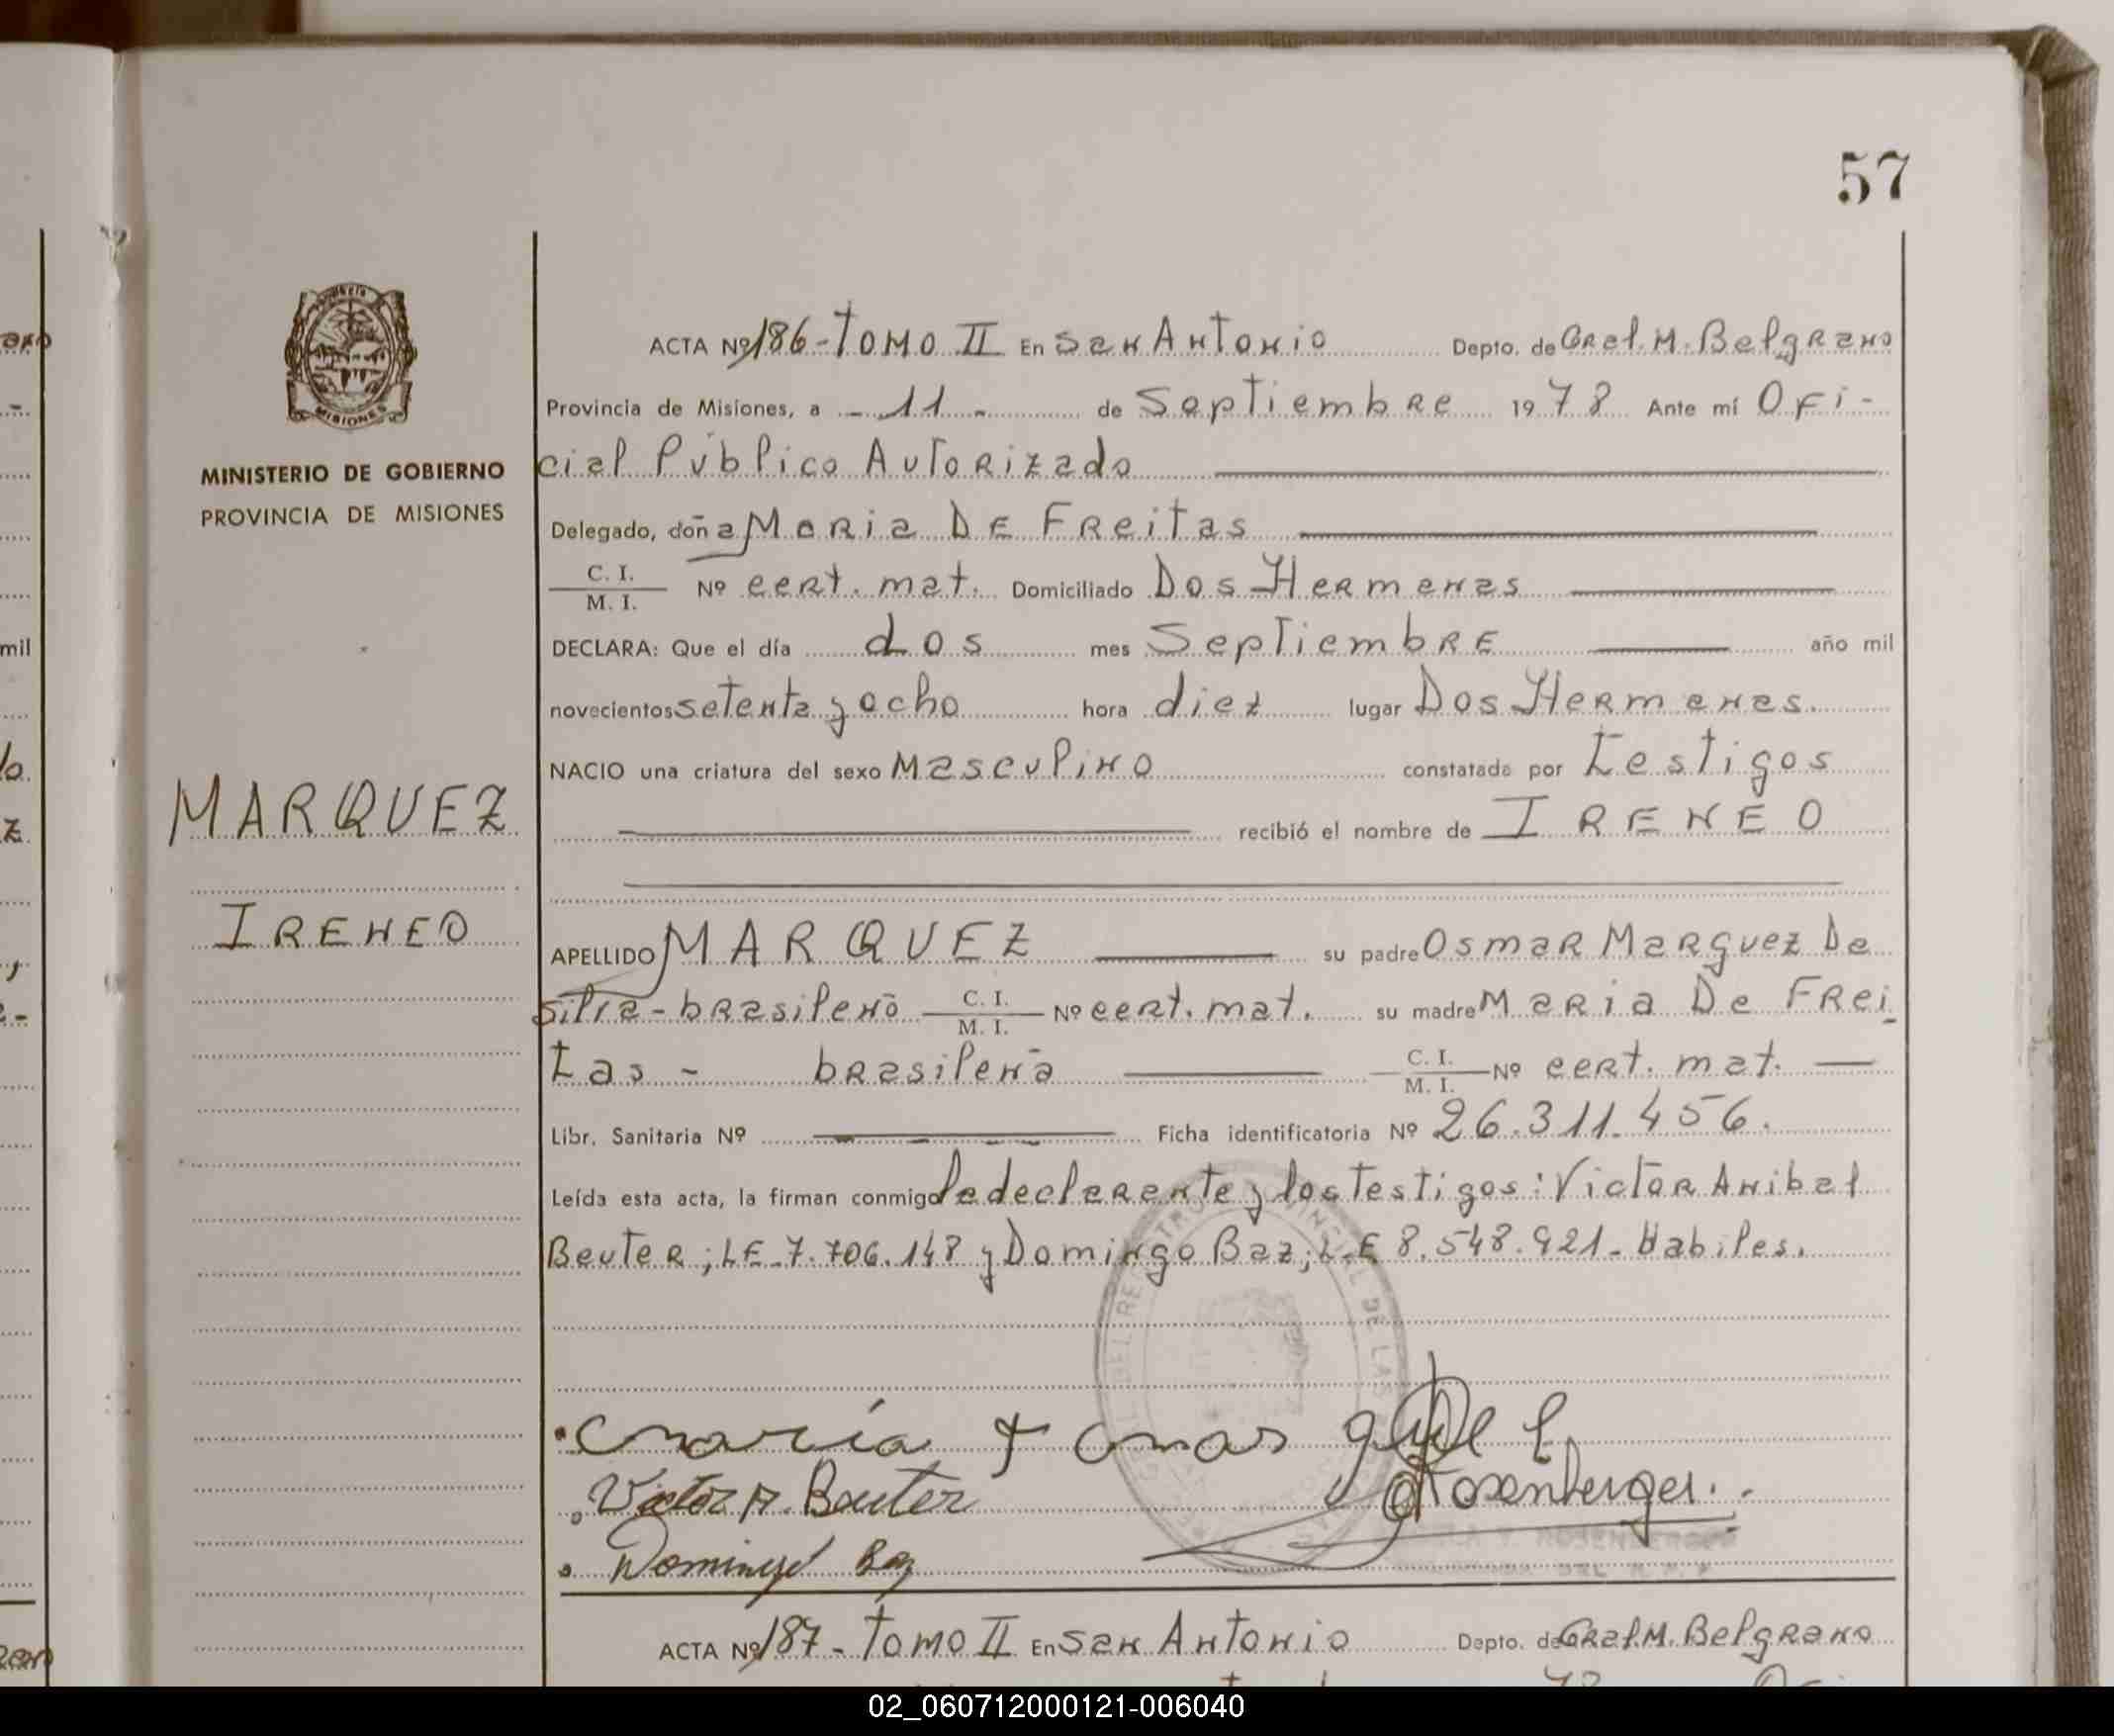 57
ACTA Nº 186-TOMO II En San Antonio Depto. de Gral. M. Belgrano
Provincia de Misiones, a - 11 - de Septiembre 1978 Ante mí Ofi-
cial Público Autorizado
MINISTERIO DE GOBIERNO
PROVINCIA DE MISIONES
Delegado, doña Maria De Freitas
C. I.
M. I. Nº cert. mat. Domiciliado Dos Hermanas
DECLARA: Que el día dos mes Septiembre año mil
novecientos setenta y ocho hora diez lugar Dos Hermanas.
NACIO una criatura del sexo Masculino constatada por testigos
recibió el nombre de IRENEO
MARQUEZ
IRENEO
APELLIDO MARQUEZ su padre Osmar Marquez De
Silva - brasileño C. I. M. I. Nº cert. mat. su madre Maria De Frei
tas - brasileña C. I. M. I. Nº cert. mat.
Libr. Sanitaria Nº Ficha identificatoria Nº 26.311.456.
Leída esta acta, la firman conmigo la declarante y los Testigos: Victor Anibal
Beuter; LE-7.706.148 y Domingo Baz; L.E 8.548.921- Habiles.
Victor A. Beuter
Rosenberger.
Domingo Baz
ACTA Nº 187- Tomo II En San Antonio Depto. de Gral. M. Belgrano
02_060712000121-006040